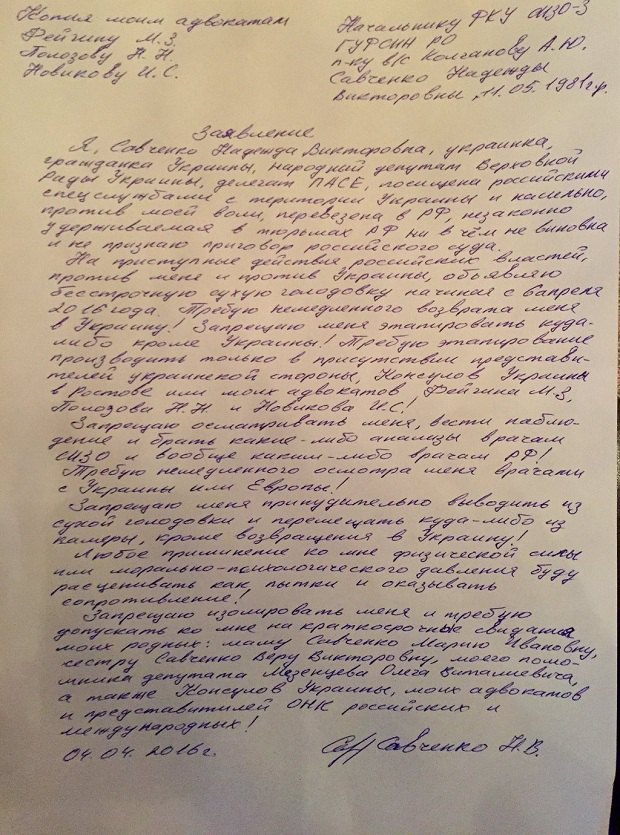 Копия моим адвокатам
Фейгину М.З.
Полозову Н.Н.
Новикову И.С.
Начальнику ФКУ СИЗО-3
ГУФСИН РО
п-ку в/с Колганову А.Ю.
Савченко Надежды
Викторовны, 11.05.1981г.р.
Заявление
Я, Савченко Надежда Викторовна, украинка,
гражданка Украины, народний депутат Верховной
Рады Украины, делегат ПАСЕ, похищена российскими
спецслужбами с територии Украины и насильно,
против моей воли, перевезена в РФ, незаконно
удерживаемая в тюрьмах РФ ни в чём не виновна
и не признаю приговор российского суда.
На приступные действия российских властей,
против меня и против Украины, объявляю
бессрочную сухую голодовку начиная с 6 апреля
2016 года. Требую немедленного возврата меня
в Украину! Запрещаю меня этапировать куда-
либо кроме Украины! Требую этапирование
производить только в присутствии представи-
телей украинской стороны, Консулов Украины
в Ростове или моих адвокатов Фейгина М.З,
Полозова Н.Н и Новикова И.С!
Запрещаю осматривать меня, вести наблю-
дение и брать какие-либо анализы врачам
СИЗО и вообще каким-либо врачам РФ!
Требую немедленного осмотра меня врачами
с Украины или Европы!
Запрещаю меня принудительно выводить из
сухой голодовки и перемещать куда-либо из
камеры, кроме возвращения в Украину!
Любое приминение ко мне физической силы
или морально-психологического давления буду
расценивать как пытки и оказывать
сопротивление!
Запрещаю изолировать меня и требую
допускать ко мне на краткосрочные свидания
моих родных: маму Савченко Марию Ивановну,
сестру Савченко Веру Викторовну, моего помо-
щника депутата Мезенцева Олега Виталиевича,
а также Консулов Украины, моих адвокатов
и представителей ОНК российских и
международных!
04.04.2016г. Савченко Н.В.